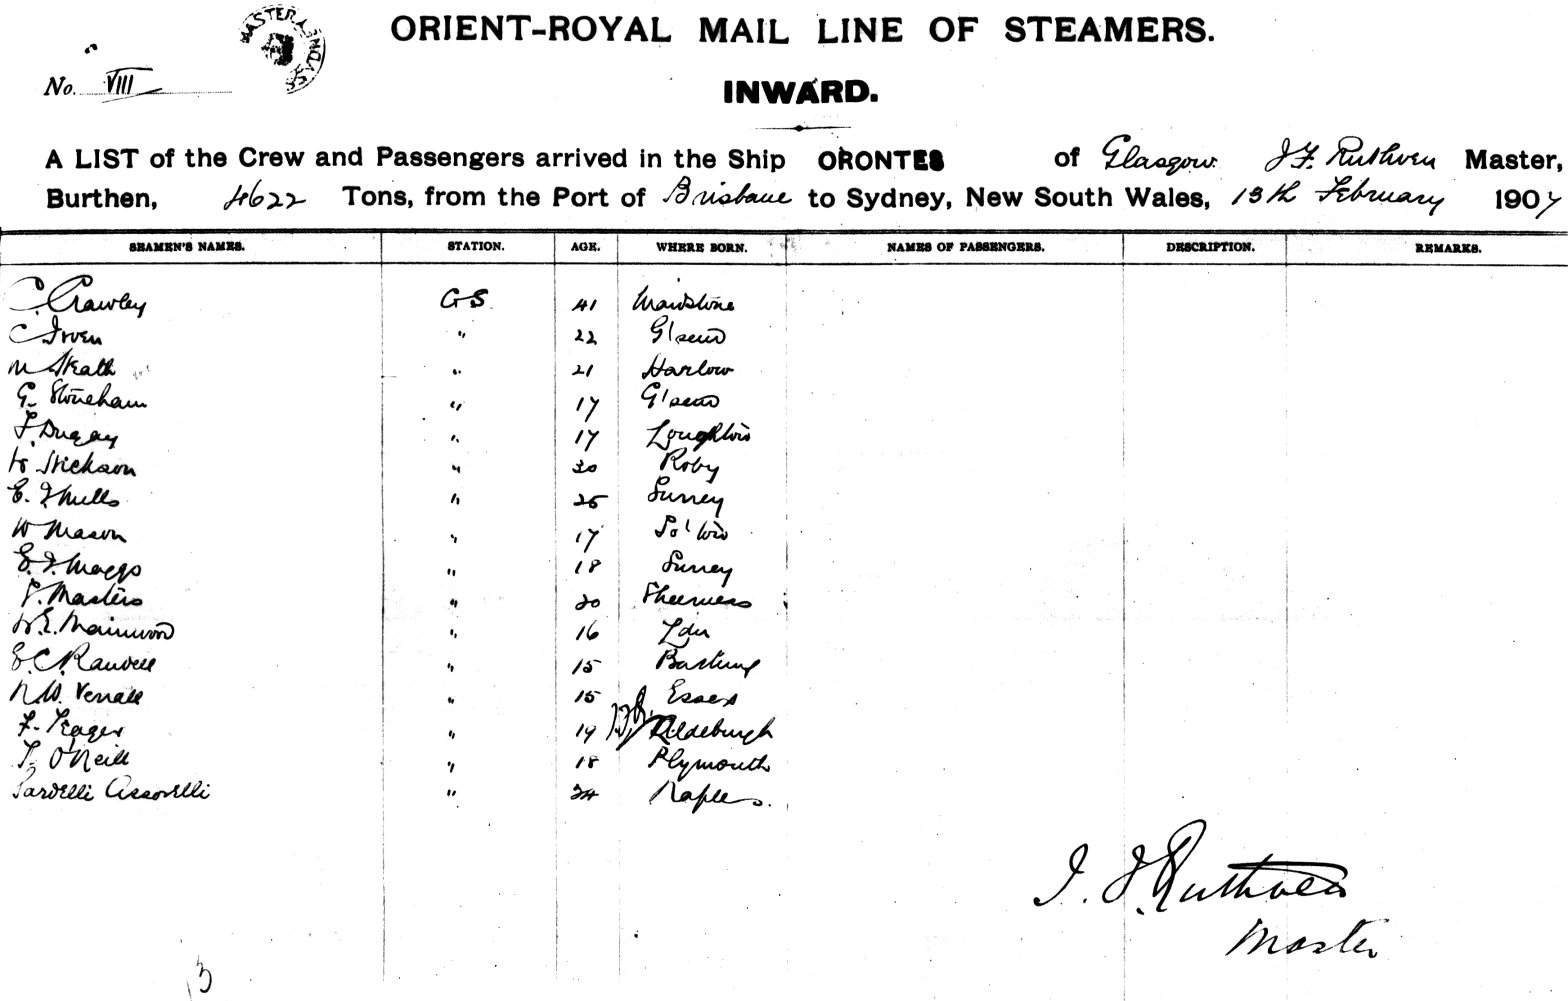 ORIENT-ROYAL MAIL LINE OF STEAMERS.
No. VIII
INWARD.
A LIST of the Crew and Passengers arrived in the Ship ORONTES of Glasgow J F Ruthven Master,
Burthen, 4622 Tons, from the Port of Brisbane to Sydney, New South Wales, 13th February 1907
SEAMEN'S NAMES. STATION. AGE. WHERE BORN. NAMES OF PASSENGERS. DESCRIPTION. REMARKS.
C. Crawley G S 41 Maidstone
C Irven " 22 G'send
M Heath " 21 Harlow
G Stoneham " 17 G'send
F. Dugay " 17 Loughton
H Hickson " 30 Roby
E. J Mills " 25 Surrey
W Mason " 17 So'ton
E. J. Maggs " 18 Surrey
P. Masters " 20 Sheerness
W. E. Mainwood " 16 Ldn
E. C. Randell " 15 Barking
N. W. Verrall " 15 Essex
F. Yeager " 19 Aldeburgh
T. O'Neill " 18 Plymouth
Assorelli " 24 Naples.
J. F. Ruthven
Master
13